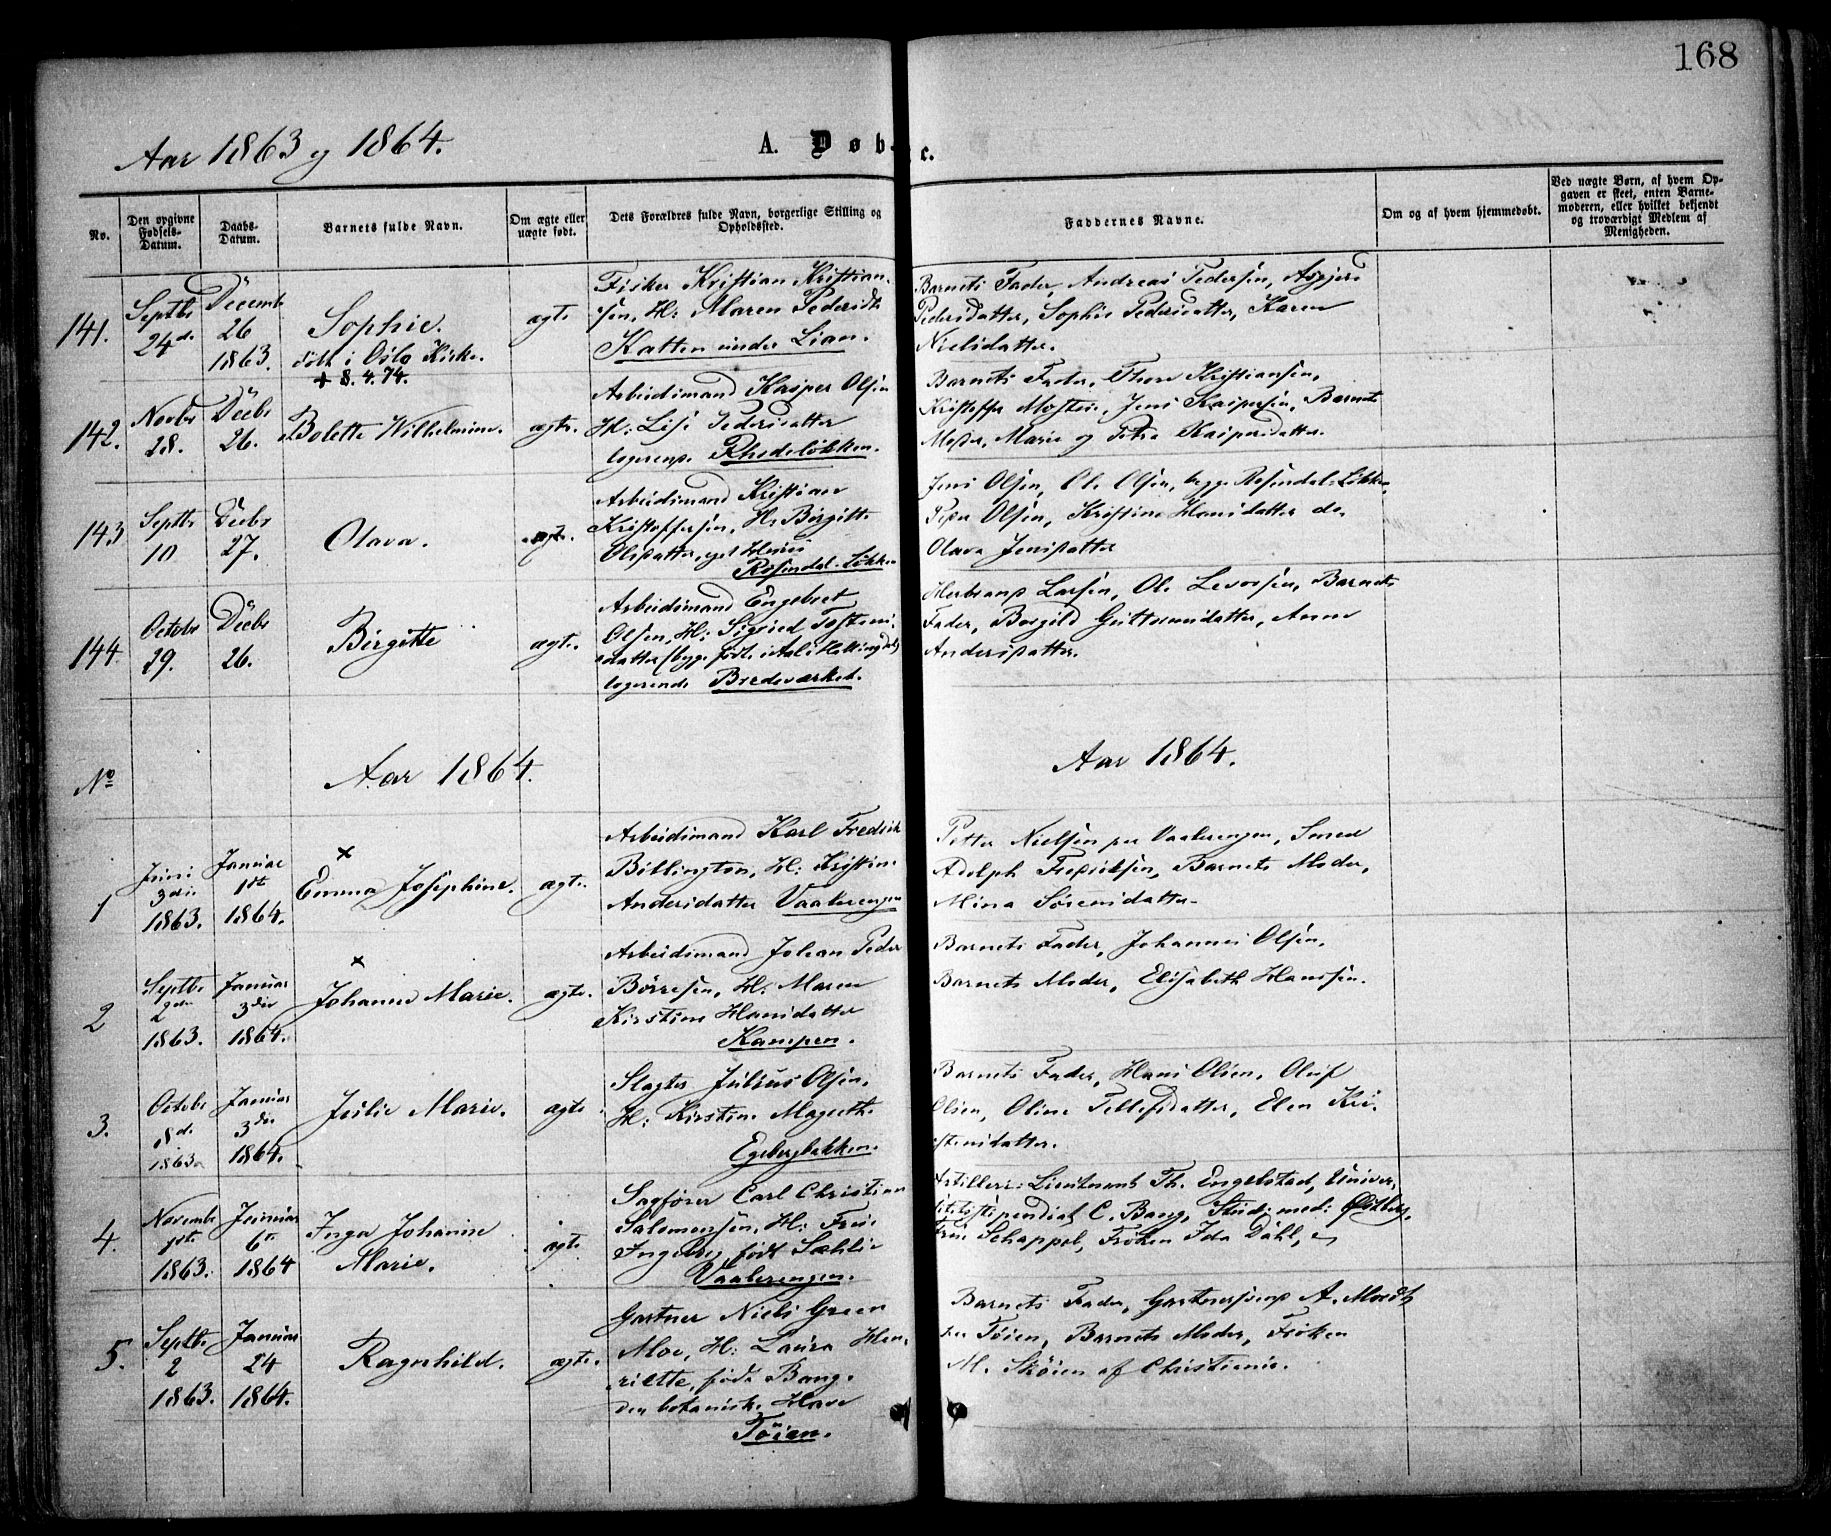 168
Aar 1863 og 1864.
A. Døbte.
No.
Den opgivne Fødsels-Datum.
Daabs-Datum.
Barnets fulde Navn.
Om ægte eller uægte født.
Dets Forældres fulde Navn, borgerlige Stilling og Opholdssted.
Faddernes Navne.
Om og af hvem hjemmedøbt.
Ved uægte Børn, af hvem Opgaven er skeet, enten Barnemoderen, eller hvilket bekjendt og troværdigt Medlem af Menigheden.
141.
Septbr 24de
Decemb 26 1863.
Sophie.
døbt i Oslo Kirke.
+ 8.4.74.
ægte
Fisker Kristian Kristian-
sen, H: Maren Pedersdtr
Katten under Lian.
Barnets Fader, Andreas Pedersen, Asgjerd
Pedersdatter, Sophie Pedersdatter, Karen
Nielsdatter.
142.
Novbr 28.
Decbr 26.
Bolette Wilhelmine.
ægte.
Arbeidsmand Kasper Olsen
H: Lise Pedersdatter
logerende Rhodeløkken.
Barnets Fader, Thore Kristiansen,
Kristoffer Mostue, Jens Kaspersen, Barnets
Moder, Marie og Petra Kaspersdatter.
143
Septbr 10
Decbr 27.
Olava.
ægte.
Arbeidsmand Kristian
Kristoffersen, H: Birgitte
Olsdatter, eget Huus
Rosendal-Løkken
Jens Olsen, Ole Olsen, begge Rosendal-Løkken,
Peder Olsen, Kristine Hansdatter do.
Olava Jensdatter
144.
Octobr 29.
Decbr 26.
Birgitte
ægte.
Arbeidsmand Engebret
Olsen, H: Sigrid Tostens-
datter (begge født i Aal i Hallingdal)
logerende Bredeværket.
Herbrand Larsen, Ole Levorsen, Barnets
Fader, Borgild Guttormsdatter, Anne
Andersdatter.
No
Aar 1864.
Aar 1864.
1
Juni 3die 1863.
Januar 1ste 1864.
x
Emma Josephine.
ægte.
Arbeidsmand Karl Fredrik
Billington, H: Kristine
Andersdatter Vaalerengen
Petter Nielsen paa Vaalerengen, Smed
Adolph Fredriksen, Barnets Moder,
Mina Sørensdatter.
2
Septbr 2den 1863.
Januar 3die 1864.
x
Johanne Marie.
ægte.
Arbeidsmand Johan Peder
Børresen, H: Maren
Kirstine Hansdatter
Kampen.
Barnets Fader, Johannes Olsen,
Barnets Moder, Elisabeth Hanssen.
3.
Octobr 8de 1863
Januar 3die 1864.
Julie Marie.
ægte.
Slagter Julius Olsen,
H: Kirstine Magrethe
Egebergbakken.
Barnets Fader, Hans Olsen, Oluf
Olsen, Oline Tellefsdatter, Elen Kri-
stensdatter.
4.
Novembr 1ste 1863.
Januar 6te 1864
Inga Johanne
Marie.
ægte
Sagfører Carl Christian
Salomonsen, H: Frue
Ingeborg, født Sæhlie
Vaalerengen.
Artilleri-Lieutenant Th. Engelstad, Univer-
sitetsstipendiat C. Bang, Stud: med: Østberg,
Frue Schappel, Frøken Ida Dahl,
5.
Septbr 2 1863.
Januar 24 1864.
Ragnhild.
ægte.
Gartner Niels Green
Moe, H: Laura Hen-
riette, født Bang.
den botaniske Have
Tøien.
Barnets Fader, Gartnersvend A. Moedt
paa Tøien, Barnets Moder, Frøken
M. Skøien af Christiania.